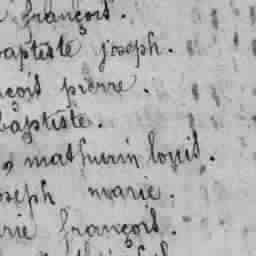 françois.
baptiste joseph.
pierre.
baptiste.
, mathurin louis.
joseph marie.
françois.